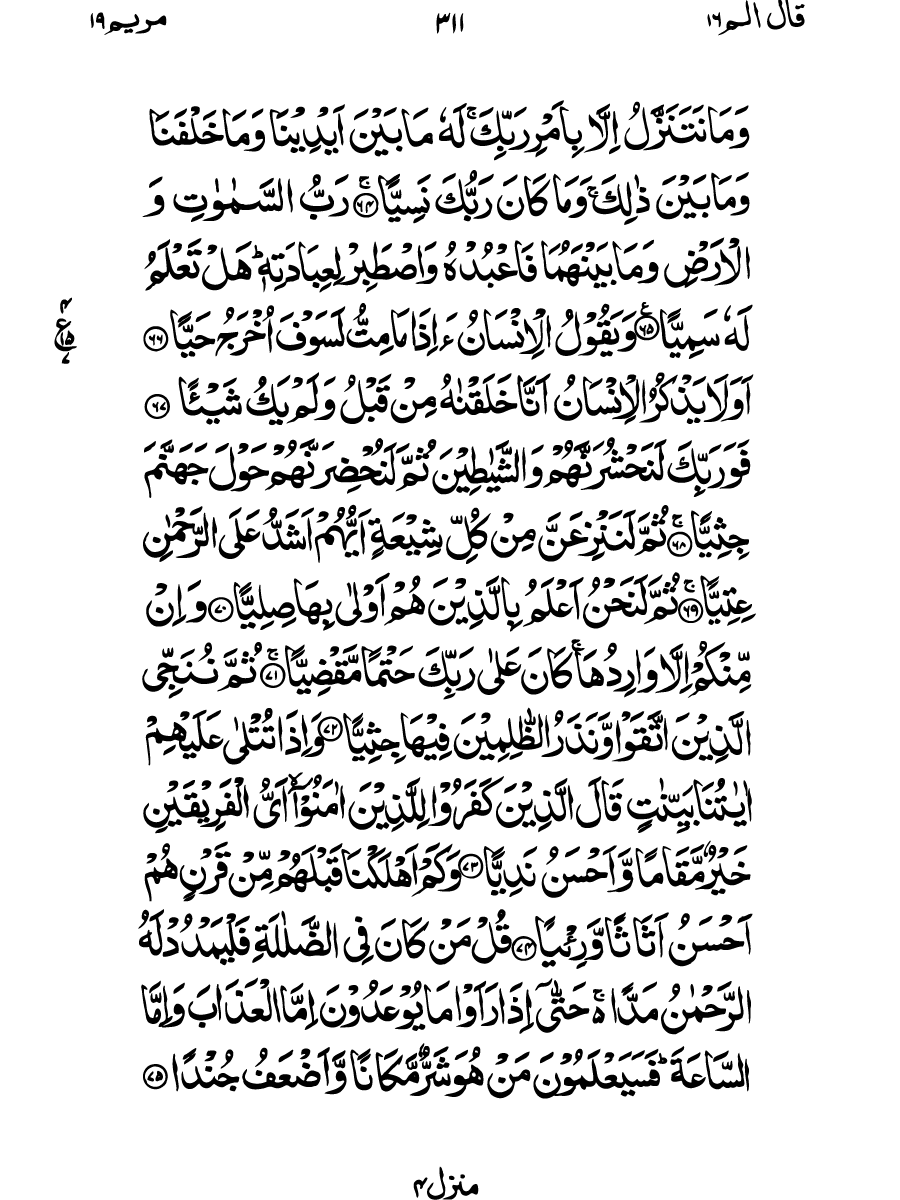 قال الـم ١٦ ٣١١ مریم ١٩
وَمَا نَتَنَزَّلُ اِلَّا بِاَمْرِ رَبِّكَ ۚ لَهٗ مَا بَيْنَ اَيْدِيْنَا وَمَا خَلْفَنَا
وَمَا بَيْنَ ذٰلِكَ ۚ وَمَا كَانَ رَبُّكَ نَسِيًّا ۚ ﴿۶۴﴾ رَبُّ السَّمٰوٰتِ وَ
الْاَرْضِ وَمَا بَيْنَهُمَا فَاعْبُدْهُ وَاصْطَبِرْ لِعِبَادَتِهٖ ؕ هَلْ تَعْلَمُ
لَهٗ سَمِيًّا ﴿۶۵﴾ؑ وَيَقُوْلُ الْاِنْسَانُ ءَاِذَا مَا مِتُّ لَسَوْفَ اُخْرَجُ حَيًّا ﴿۶۶﴾
ع ۴ ۱۵ ۷
اَوَلَا يَذْكُرُ الْاِنْسَانُ اَنَّا خَلَقْنٰهُ مِنْ قَبْلُ وَلَمْ يَكُ شَيْـًٔا ﴿۶۷﴾
فَوَرَبِّكَ لَنَحْشُرَنَّهُمْ وَالشَّيٰطِيْنَ ثُمَّ لَنُحْضِرَنَّهُمْ حَوْلَ جَهَنَّمَ
جِثِيًّا ۚ ﴿۶۸﴾ ثُمَّ لَنَنْزِعَنَّ مِنْ كُلِّ شِيْعَةٍ اَيُّهُمْ اَشَدُّ عَلَى الرَّحْمٰنِ
عِتِيًّا ۚ ﴿۶۹﴾ ثُمَّ لَنَحْنُ اَعْلَمُ بِالَّذِيْنَ هُمْ اَوْلٰى بِهَا صِلِيًّا ﴿۷۰﴾ وَاِنْ
مِّنْكُمْ اِلَّا وَارِدُهَا ۚ كَانَ عَلٰى رَبِّكَ حَتْمًا مَّقْضِيًّا ۚ ﴿۷۱﴾ ثُمَّ نُـنَجِّى
الَّذِيْنَ اتَّقَوْا وَّنَذَرُ الظّٰلِمِيْنَ فِيْهَا جِثِيًّا ﴿۷۲﴾ وَاِذَا تُتْلٰى عَلَيْهِمْ
اٰيٰتُنَا بَيِّنٰتٍ قَالَ الَّذِيْنَ كَفَرُوْا لِلَّذِيْنَ اٰمَنُوْۤا ۙ اَىُّ الْفَرِيْقَيْنِ
خَيْرٌ مَّقَامًا وَّاَحْسَنُ نَدِيًّا ﴿۷۳﴾ وَكَمْ اَهْلَكْنَا قَبْلَهُمْ مِّنْ قَرْنٍ هُمْ
اَحْسَنُ اَثَاثًا وَّرِءْيًا ﴿۷۴﴾ قُلْ مَنْ كَانَ فِى الضَّلٰلَةِ فَلْيَمْدُدْ لَهُ
الرَّحْمٰنُ مَدًّا ۚ۬ حَتّٰٓى اِذَا رَاَوْا مَا يُوْعَدُوْنَ اِمَّا الْعَذَابَ وَاِمَّا
السَّاعَةَ ؕ فَسَيَعْلَمُوْنَ مَنْ هُوَ شَرٌّ مَّكَانًا وَّاَضْعَفُ جُنْدًا ﴿۷۵﴾
منزل ۴